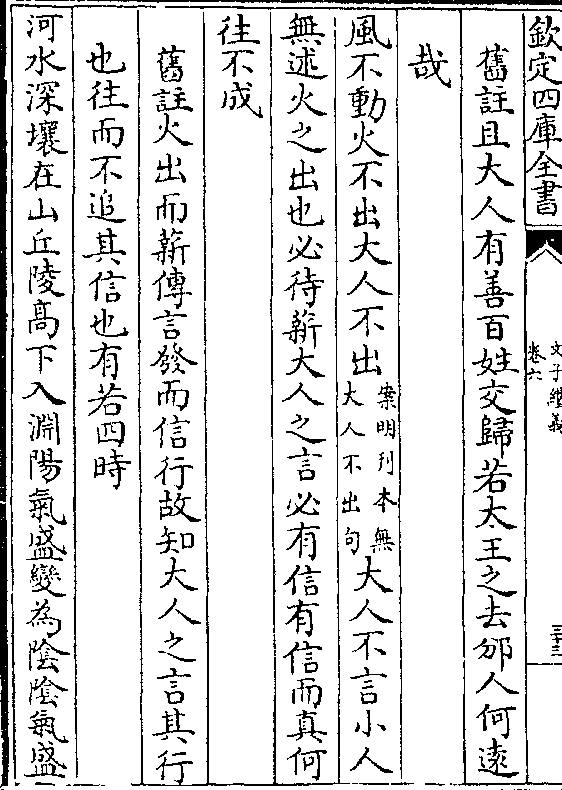 欽定四庫全書
文子纘義
卷六
三十三
舊註且大人有善百姓交歸若太王之去邠人何逺
哉
風不動火不出大人不出案明刋本無大人不出句大人不言小人
無述火之出也必待薪大人之言必有信有信而真何
往不成
舊註火出而薪傳言發而信行故知大人之言其行
也往而不追其信也有若四時
河水深壤在山丘陵髙下入淵陽氣盛變為陰陰氣盛